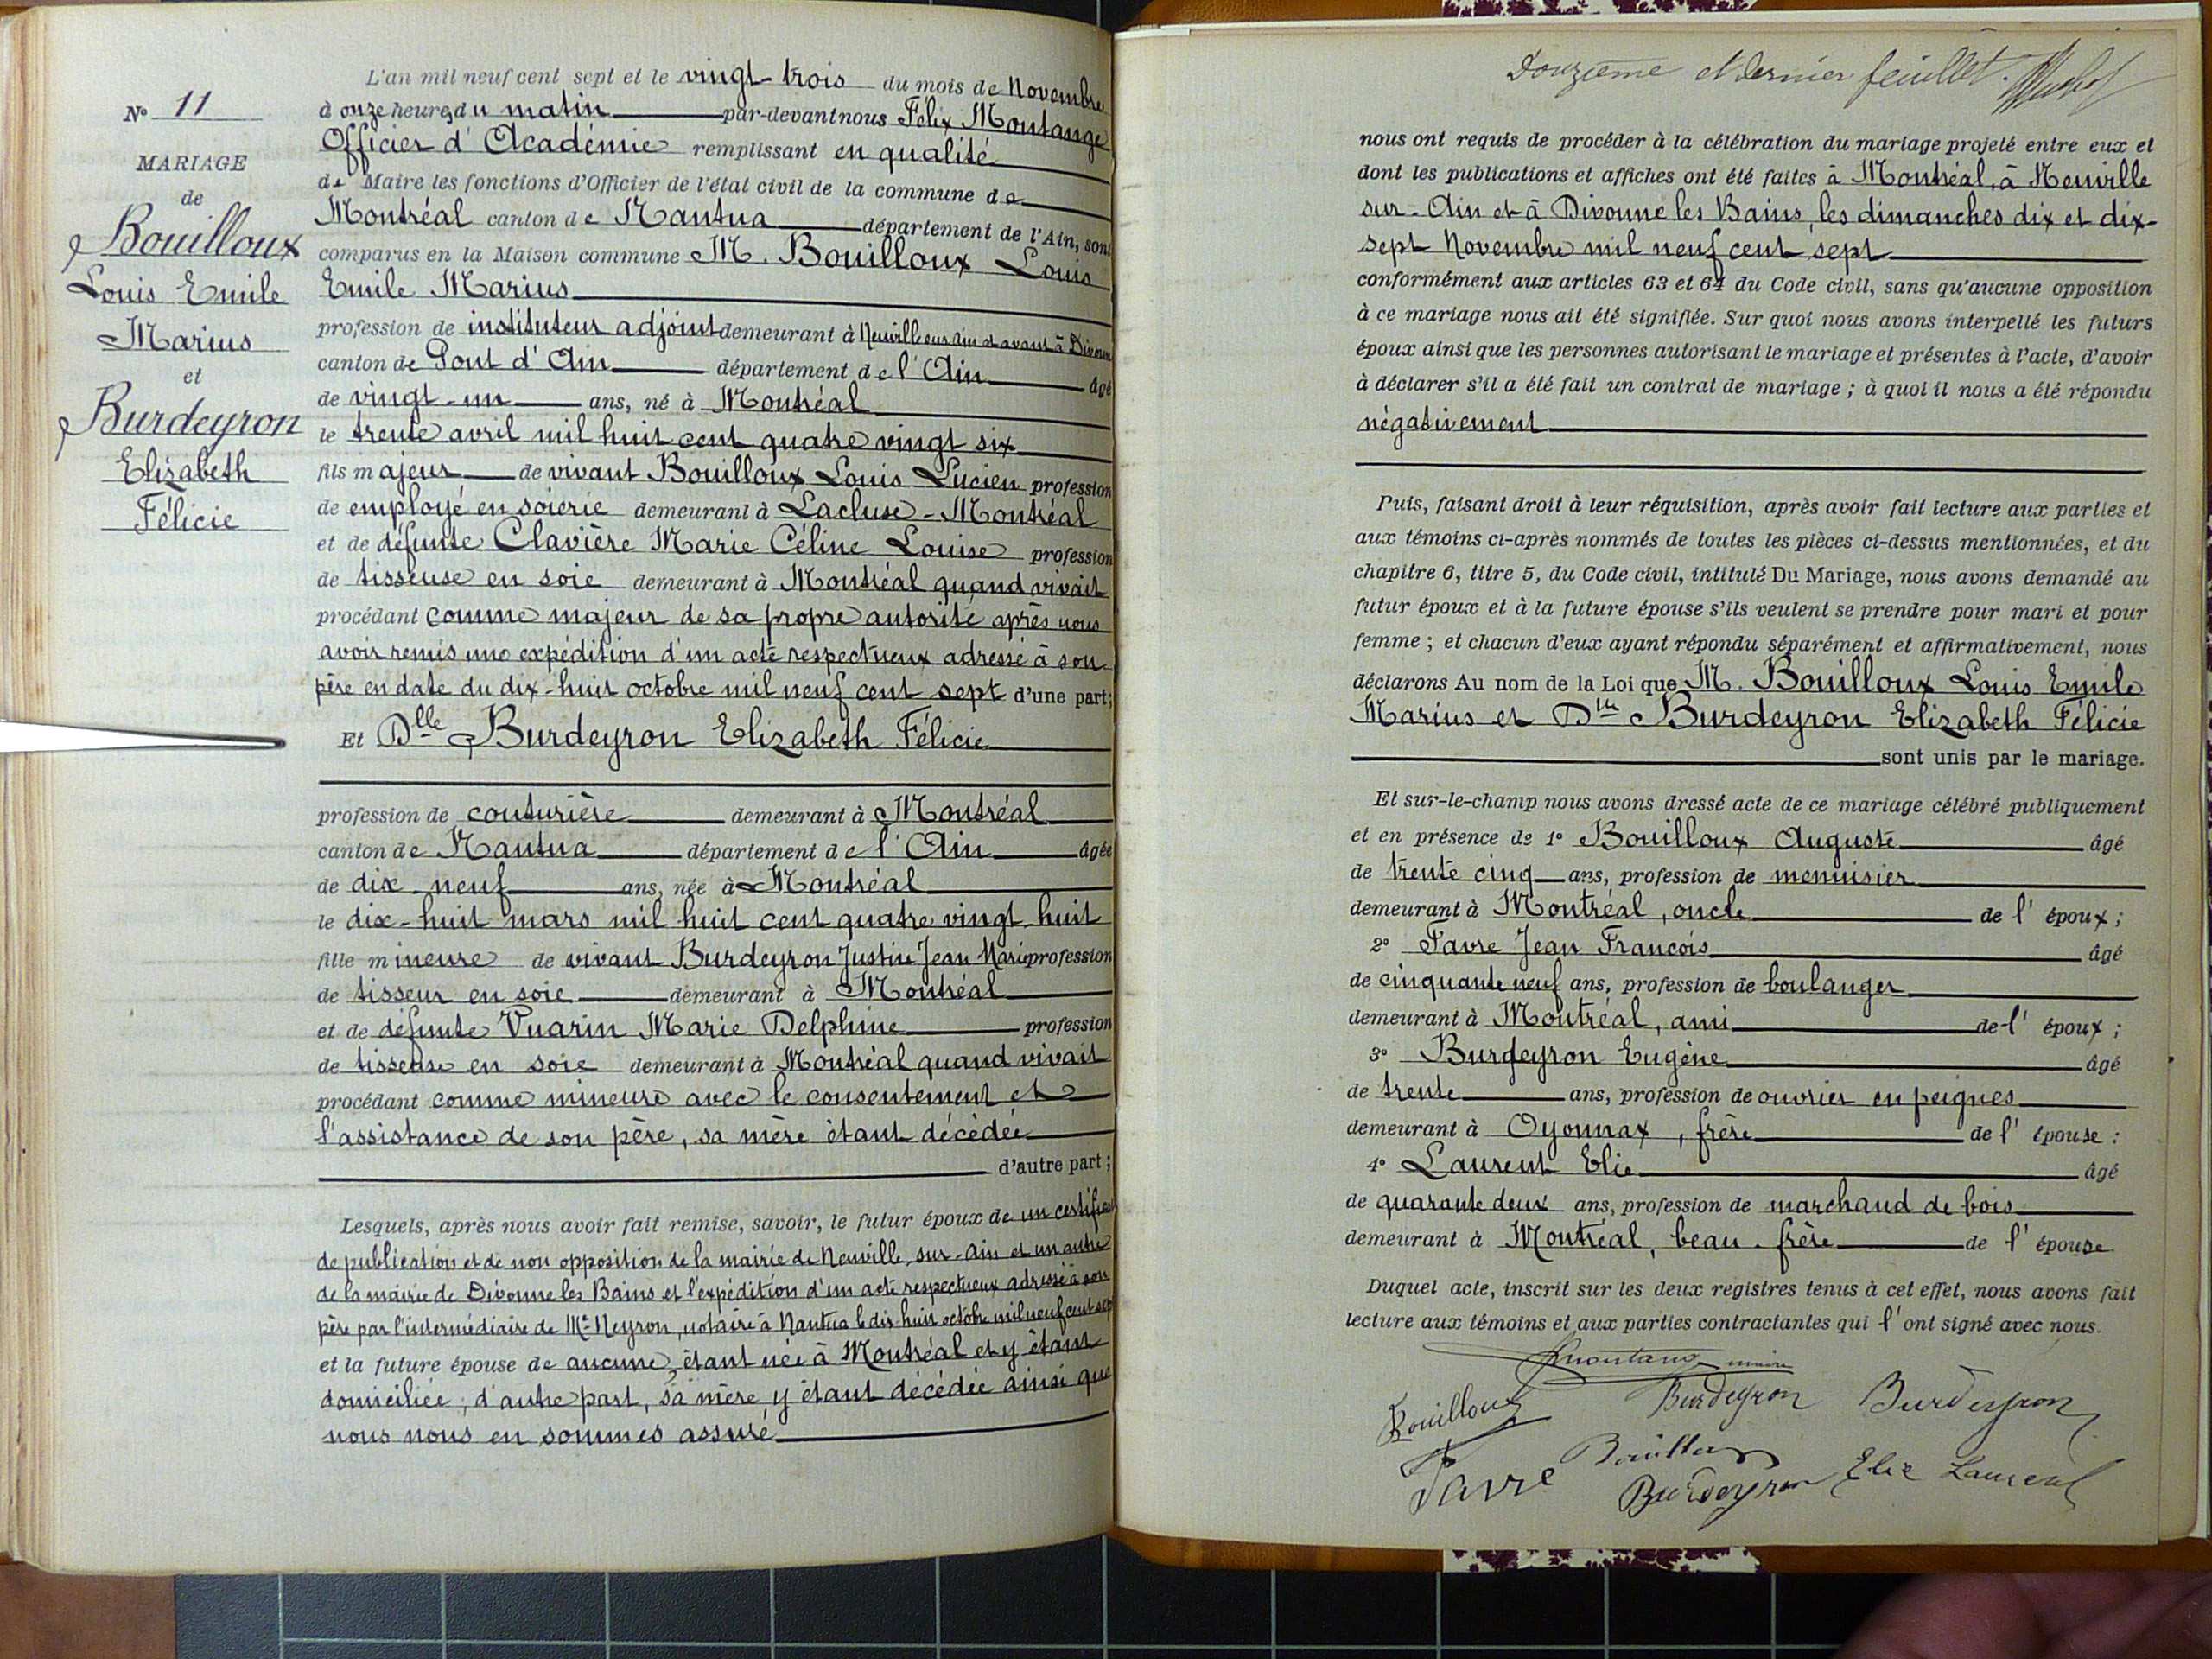 N° 11
MARIAGE
de
Bouilloux
Louis Emile
Marius
et
Burdeyron
Elisabeth
Félicie
L'an mil neuf cent sept et le vingt-trois du mois de Novembre
à onze heures du matin par-devant nous Félix Montange
Officier d'Académie remplissant en qualité
de Maire les fonctions d'Officier de l'état civil de la commune de
Montréal canton de Nantua département de l'Ain, sont
comparus en la Maison commune M. Bouilloux Louis
Emile Marius
profession de instituteur adjoint demeurant à Neuville sur Ain et avant à Divonne
canton de Pont d'Ain département de l'Ain âgé
de vingt-un ans, né à Montréal
le trente avril mil huit cent quatre vingt six
fils majeur de vivant Bouilloux Louis Lucien profession
de employé en soierie demeurant à Lacluse-Montréal
et de défunte Clavière Marie Céline Louise profession
de tisseuse en soie demeurant à Montréal quand vivait
procédant comme majeur de sa propre autorité après nous
avoir remis une expédition d'un acte respectueux adressé à son
père en date du dix-huit octobre mil neuf cent sept d'une part;
Et Dlle Burdeyron Elisabeth Félicie
profession de couturière demeurant à Montréal
canton de Nantua département de l'Ain âgée
de dix-neuf ans, née à Montréal
le dix-huit mars mil huit cent quatre vingt-huit
fille mineure de vivant Burdeyron Justin Jean Marie profession
de tisseur en soie demeurant à Montréal
et de défunte Vuarin Marie Delphine profession
de tisseuse en soie demeurant à Montréal quand vivait
procédant comme mineure avec le consentement et
l'assistance de son père, sa mère étant décédée
d'autre part;
Lesquels, après nous avoir fait remise, savoir, le futur époux de un certificat
de publication et de non opposition de la mairie de Neuville-sur-Ain et un autre
de la mairie de Divonne les Bains et l'expédition d'un acte respectueux adressé à son
père par l'intermédiaire de Me Neyron, notaire à Nantua le dix-huit octobre mil neuf cent sept
et la future épouse de aucune, étant née à Montréal et y étant
domiciliée, d'autre part, sa mère y étant décédée ainsi que
nous nous en sommes assuré
Douzième et dernier feuillet.
nous ont requis de procéder à la célébration du mariage projeté entre eux et
dont les publications et affiches ont été faites à Montréal, à Neuville
sur-Ain et à Divonne les Bains, les dimanches dix et dix-
sept Novembre mil neuf cent sept
conformément aux articles 63 et 64 du Code civil, sans qu'aucune opposition
à ce mariage nous ait été signifiée. Sur quoi nous avons interpellé les futurs
époux ainsi que les personnes autorisant le mariage et présentes à l'acte, d'avoir
à déclarer s'il a été fait un contrat de mariage; à quoi il nous a été répondu
négativement
Puis, faisant droit à leur réquisition, après avoir fait lecture aux parties et
aux témoins ci-après nommés de toutes les pièces ci-dessus mentionnées, et du
chapitre 6, titre 5, du Code civil, intitulé Du Mariage, nous avons demandé au
futur époux et à la future épouse s'ils veulent se prendre pour mari et pour
femme; et chacun d'eux ayant répondu séparément et affirmativement, nous
déclarons Au nom de la Loi que M. Bouilloux Louis Emile
Marius et Dlle Burdeyron Elizabeth Félicie
sont unis par le mariage.
Et sur-le-champ nous avons dressé acte de ce mariage célébré publiquement
et en présence de 1° Bouilloux Auguste âgé
de trente cinq ans, profession de menuisier
demeurant à Montréal, oncle de l'époux;
2° Favre Jean François âgé
de cinquante neuf ans, profession de boulanger
demeurant à Montréal, ami de l'époux;
3° Burdeyron Eugène âgé
de trente ans, profession de ouvrier en peignes
demeurant à Oyonnax, frère de l'épouse:
4° Laurent Elie âgé
de quarante deux ans, profession de marchand de bois
demeurant à Montréal, beau-frère de l'épouse
Duquel acte, inscrit sur les deux registres tenus à cet effet, nous avons fait
lecture aux témoins et aux parties contractantes qui l'ont signé avec nous.
Fmontange maire
Bouilloux Burdeyron Burdeyron
Favre Bouilloux Burdeyron Elie Laurent